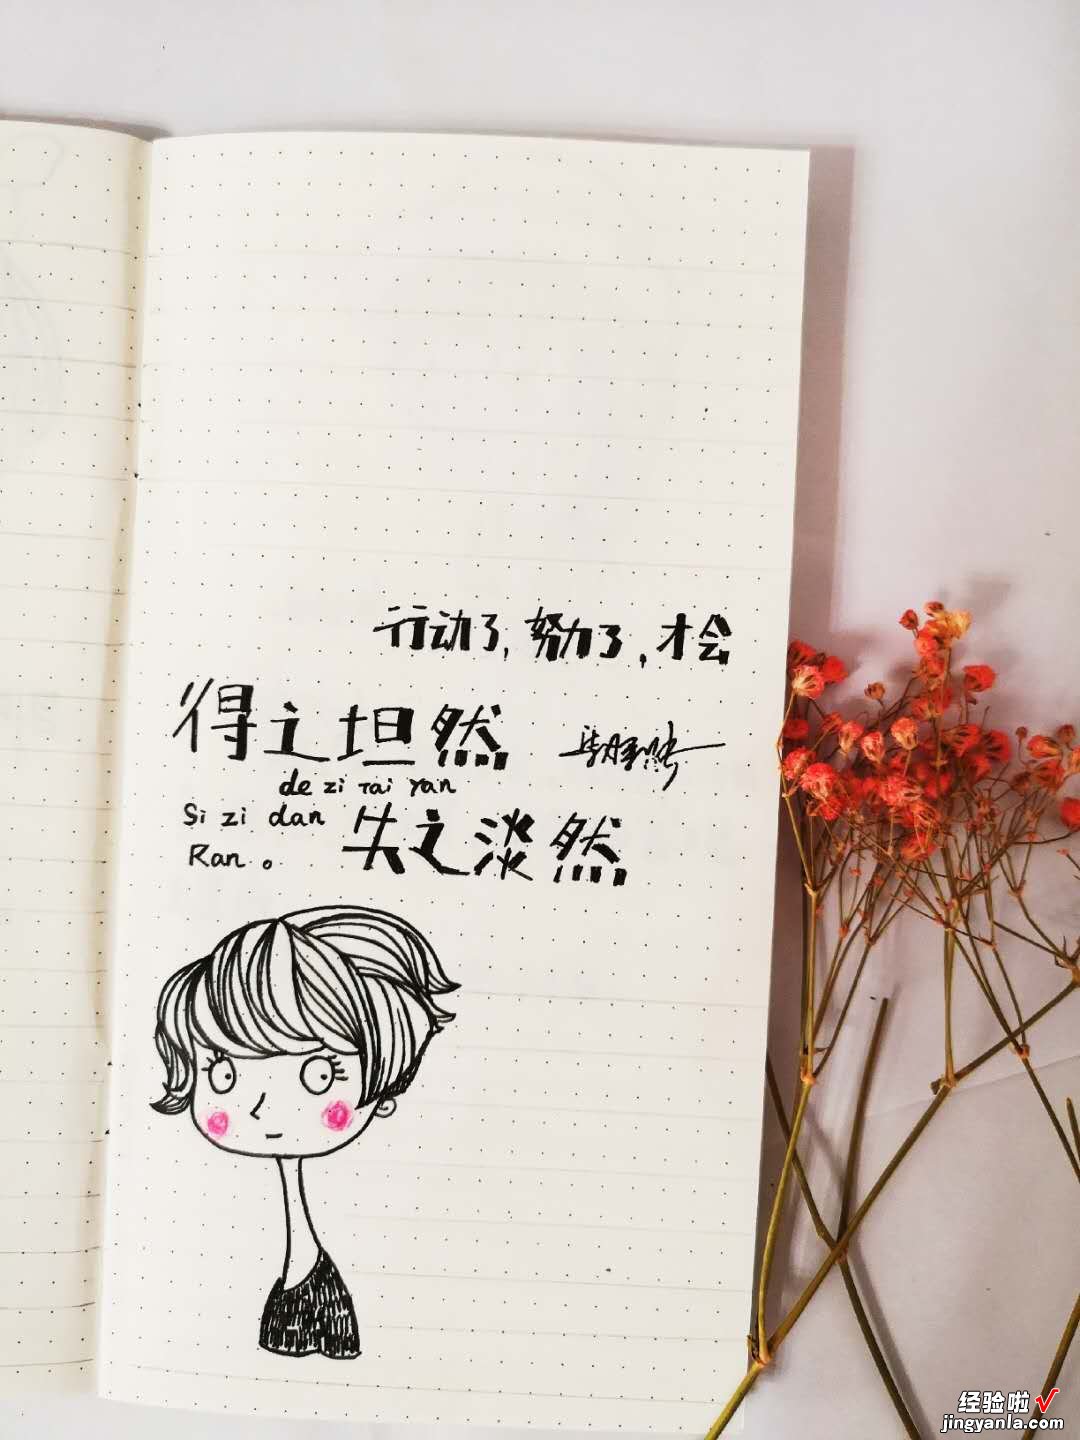 行动了,努力了,才会
得之坦然
de zi Tai ran
Si zi dan 失之淡然
Ran。
经验啦
jingyanla.com